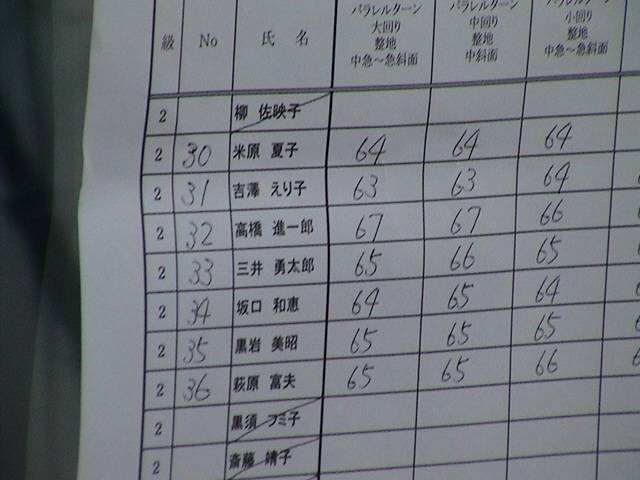 級 No 氏 名 パラレルターン 大回り 整地 中急～急斜面 パラレルターン 中回り 整地 中斜面 パラレルターン 小回り 整地 中急～急斜面
2 柳 佐映子
2 30 米原 夏子 64 64 64
2 31 吉澤 えり子 63 63 64
2 32 高橋 進一郎 67 67 66
2 33 三井 勇太郎 65 66 65
2 34 坂口 和恵 64 65 64
2 35 黒岩 美昭 65 65 65
2 36 萩原 富夫 65 65 66
2 黒須 フミ子
2 斎藤 靖子